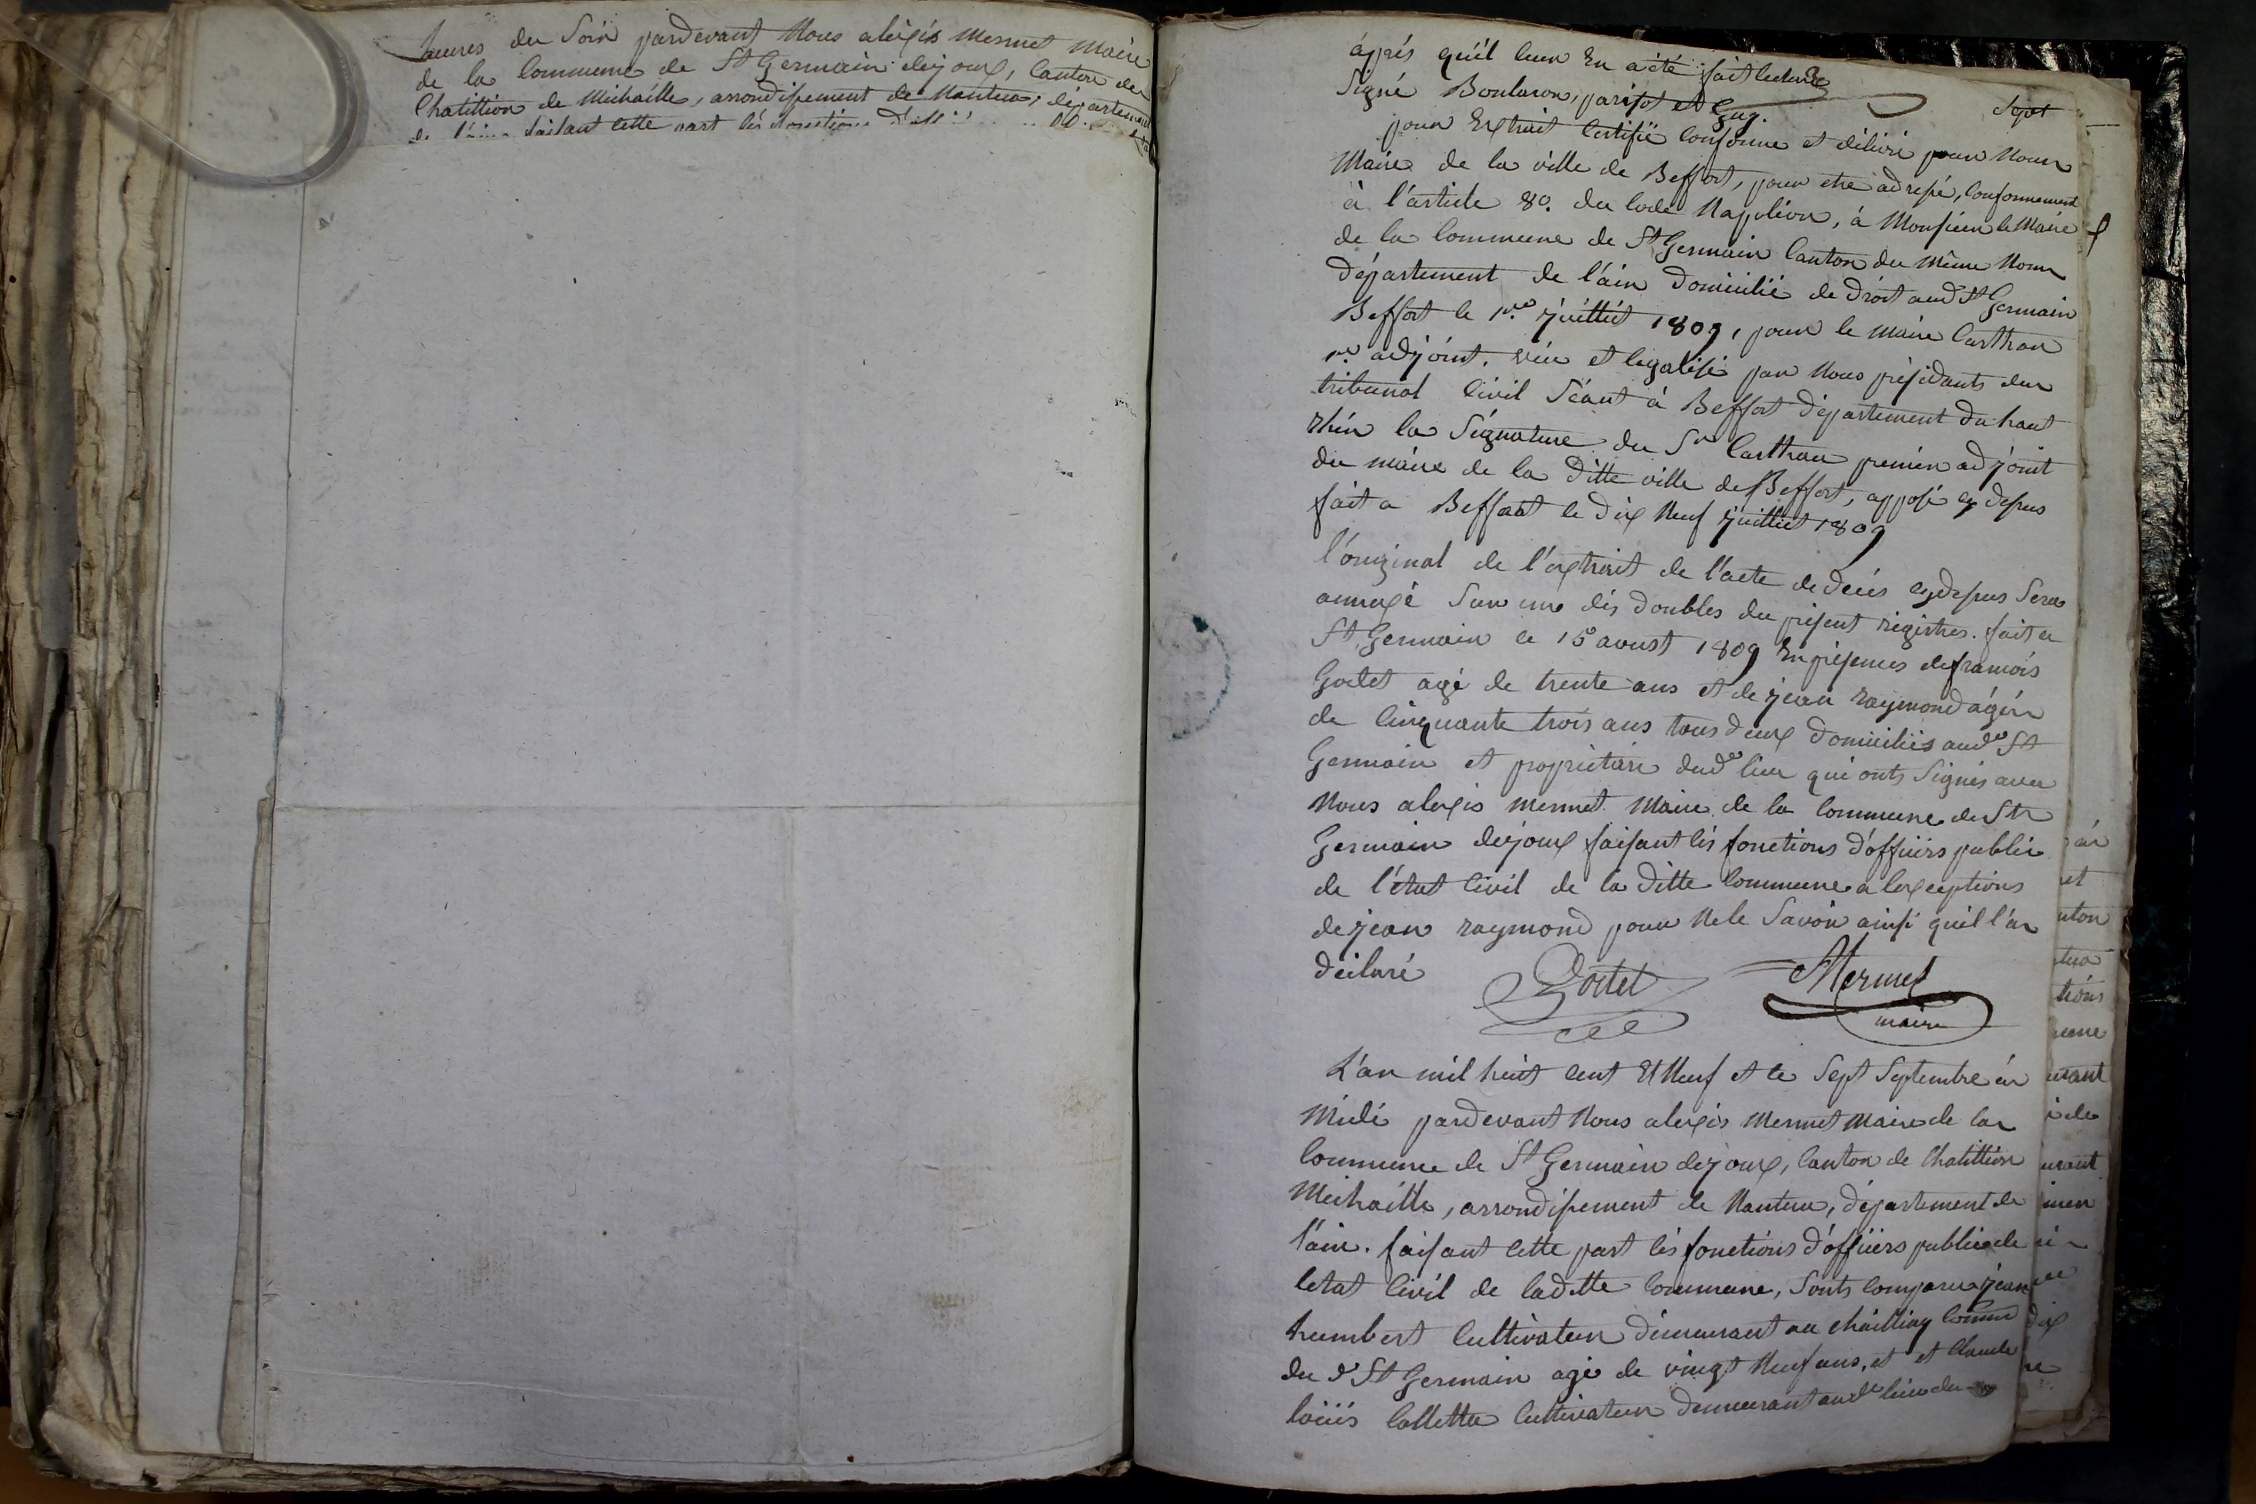 heures du Soir pardevant Nous alexis Mermet Maire
de la Commune de St Germain dejoux, Canton de
Chatillion de Michaille, arrondissement de Nantua, département
de l'ain faisant cette part les fonctions
après qu'il leur En a été fait lecture
Signé Boularon, parisot et Guy.
Sept
pour Extrait Certifié Conforme et délivré pour Nous
Maire de la ville de Beffort, pour etre adressé, Conformement
à l'article 80. du Code Napoléon, à Monsieur le Maire
de la Commune de St Germain Canton du même Nom
département de l'ain Domicilié de droit aud St Germain
Beffort le 1er juillet 1809, pour le maire Carthau
1er adjoint. vûe et legalisé par Nous présidants du
tribunal Civil Séant à Beffort département du haut
rhin la Signature du Sr Carthau premier adjoint
du maire de la ditte ville de Beffort, apposé cy dessus
fait a Beffort le dix Neuf juillet 1809
l'original de l'extrait de l'acte de décés cydessus Sera
annexé Sur une dés doubles du présent régistres. fait a
St Germain le 15 aoust 1809 En présences de francois
Godet agé de trente ans et de jean raymond agé
de Cinquante trois ans tous deux domiciliés aud St
Germain et propriétaire dud lieu qui onts Signés avec
Nous alexis mermet Maire de la Commune de St
Germain dejoux faisant lés fonctions d'officiers public
de l'état Civil de la ditte Commune a lexceptions
de jean raymond pour Ne le Savoir ainsi quil l'a
déclaré
Godet Mermet
maire
L'an mil huit cent Et Neuf et le Sept Septembre a
Midi pardevant Nous alexis Mermet Maire de la
Commune de St Germain dejoux, Canton de Chatillion
Michaille, arrondissement de Nantua, département de
l'ain. faisant cette part lés fonctions d'officiers public de
letat Civil de laditte Commune, Sonts Comparu jean
humbert Cultivateur démeurant au chaillay Comune
du d St Germain agé de vingt Neuf ans, et et Claude
loüis Colletta Cultivateur demeurant aud lieu du